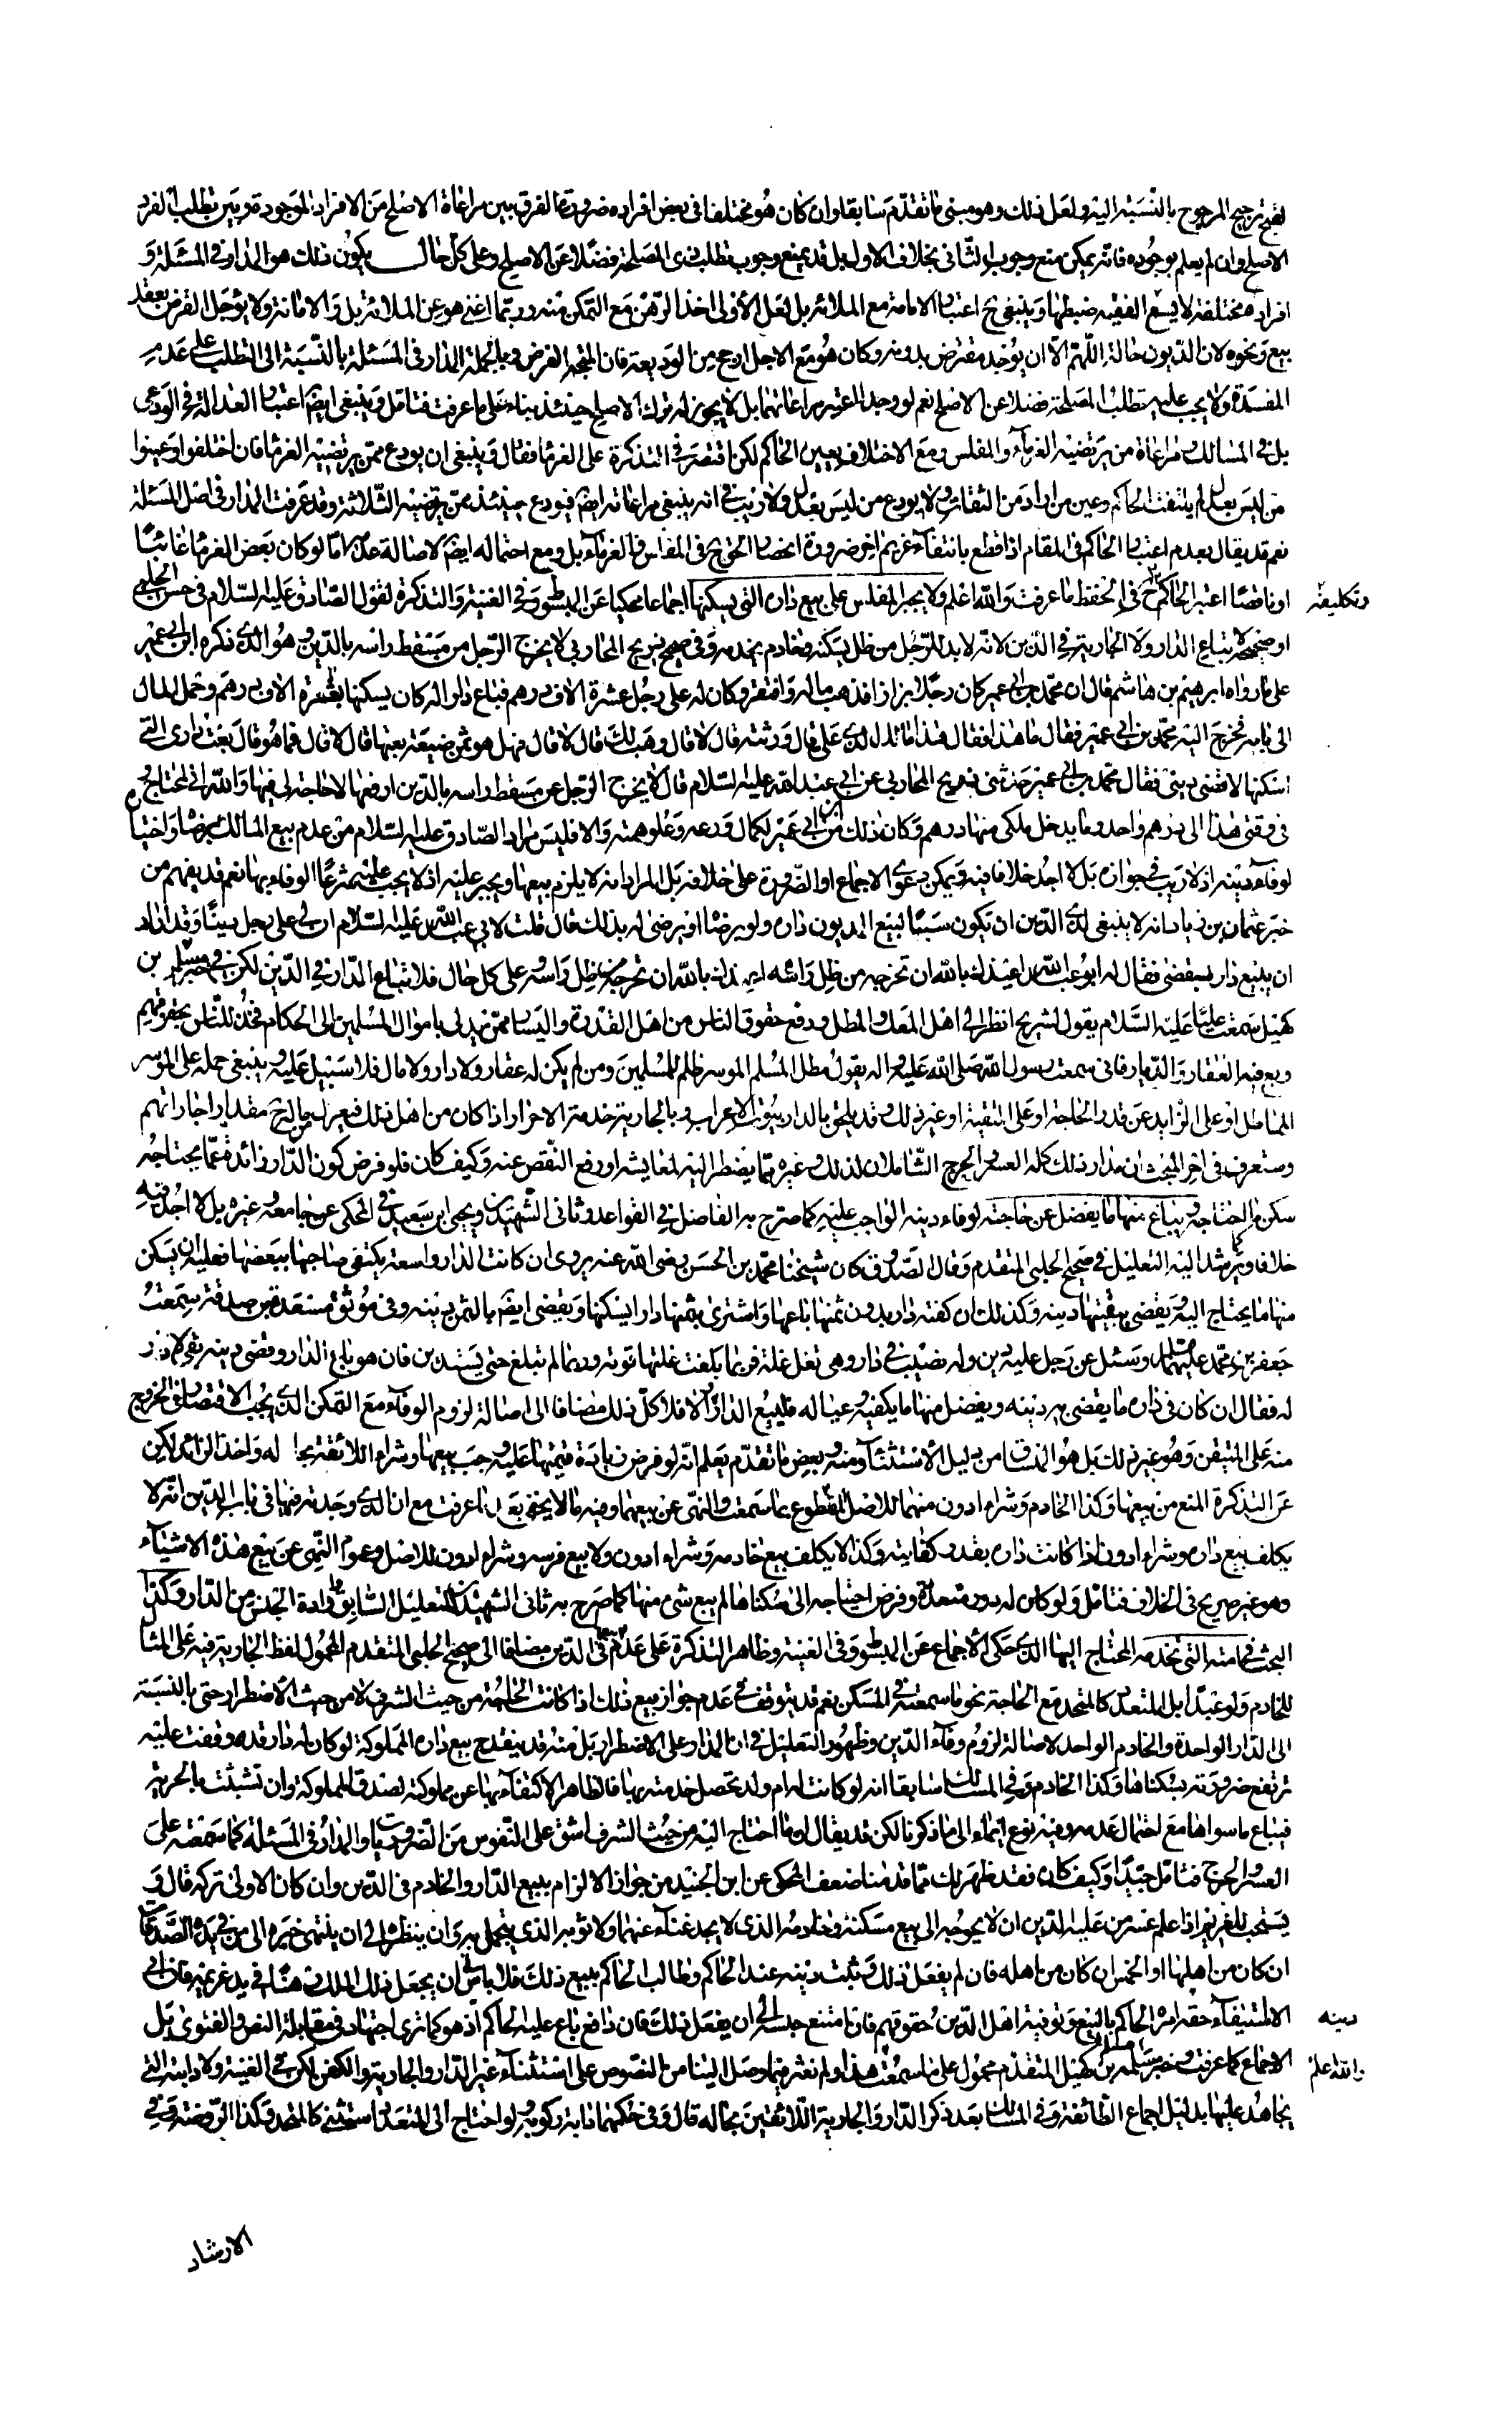 لقبح ترجيح المرجوح بالنسبة اليه ولعل ذلك وهو مبنى ما تقدم سابقا وان كان هو مختلفا فى بعض افراده ضرورة الفرق بين مراعاة الاصلح من الافراد الموجودة وبين تطلب الفرد
الاصلح وان لم يعلم بوجوده فانه يمكن منع وجوب الثانى بخلاف الاول بل قد يمنع وجوب تطلب ذى المصلحة فضلا عن الاصلح وعلى كل حال يكون ذلك هو المدار فى المسئلة و
افراده مختلفة لا يسع الفقيه ضبطها وينبغى ح اعتبار الامانة مع الملائة بل لعل الاولى اخذ الرهن مع التمكن منه وربما اغنى هو عن الملائة بل والامانة ولا يؤجل القرض بعقد
بيع ونحوه لان الديون حالة اللهم الا ان يوجد مقترض بدونه وكان هو مع الاجل ارجح من الوديعة فان المتجه القرض وبالجملة المدار فى المسئلة بالنسبة الى التطلب على عدم
المفسدة ولا يجب عليه تطلب المصلحة فضلا عن الاصلح نعم لو وجد المصلحة مراعاتهما بل لا يجوز له ترك الاصلح حينئذ بناء على ما عرفت فتامل وينبغى ايضا اعتبار العدالة فى الودعى
بل فى المسالك مراعاة من يرتضيه الغرماء والمفلس ومع الاختلاف يعين الحاكم لكن اقتصر فى التذكرة على الغرماء فقال وينبغى ان يودع ممن يرتضيه الغرماء فان اختلفوا او عينوا
من ليس بعدل لم يلتفت الحاكم وعين من اراد من الثقات ولا يودع من ليس بعدل ولا ريب فى انه ينبغى مراعاته ايضا فيودع حينئذ ممن يرتضيه الثلاثة وقد عرفت المدار فى اصل المسئلة
نعم قد يقال بعدم اعتبار الحاكم فى المقام اذا قطع بانتفاء غريم اخر ضرورة انحصار الحق ح فى المفلس والغرماء بل ومع احتماله ايضا لاصالة عدمه اما لو كان بعض الغرماء غائبا
او ناقصا اعتبر الحاكم ح فى الحفظ ما عرفت والله اعلم ولا يجبر المفلس على بيع داره التى يسكنها اجماعا محكيا عن المبسوط وفى الغنية والتذكرة لقول الصادق عليه السلام فى حسن الحلبى
وتكليفه
او صحيحه لا تباع الدار ولا الجارية فى الدين لانه لا بد للرجل من ظل يسكنه وخادم يخدمه وفى صحيح ذريح المحاربى لا يخرج الرجل من مسقط راسه بالدين وهو الذى ذكره ابن ابى عمير
على ما رواه ابرهيم بن هاشم قال ان محمد بن ابى عمير كان رجلا بزازا فذهب ماله وافتقر وكان له على رجل عشرة الاف درهم فباع دارا له كان يسكنها بعشرة الاف درهم وحمل المال
الى بابه فخرج اليه محمد بن ابى عمير فقال ما هذا فقال هذا مالك الذى على قال ورثته قال لا قال وهب لك قال لا قال فهل هو ثمن ضيعة بعتها قال لا قال فما هو قال بعت دارى التى
اسكنها لاقضى دينى فقال محمد بن ابى عمير حدثنى ذريح المحاربى عن ابى عبد الله عليه السلام قال لا يخرج الرجل عن مسقط راسه بالدين ارفعها لا حاجة لى فيها والله انى لمحتاج
فى وقتى هذا الى درهم واحد وما يدخل ملكى منها درهم وكان ذلك من ابن ابى عمير لكمال ورعه وعلو همته والا فليس مراد الصادق عليه السلام من عدم بيع المالك برضاه واختياره
لوفاء دينه اذ لا ريب فى جوازه بل لا اجد خلافا فيه ويمكن دعوى الاجماع او الضرورة على خلافه بل المراد انه لا يلزم ببيعها ويجبر عليه اذ لا يجب عليه شرعا الوفاء بها نعم قد يفهم من
خبر عثمان بن زياد انه لا ينبغى لذى الدين ان يكون سببا لبيع المديون داره ولو برضاه او يرضى له بذلك قال قلت لابى عبد الله عليه السلام ان لى على رجل دينا وقد اراد
ان يبيع داره فيقضى فقال له ابو عبد الله اعيذك بالله ان تخرجه من ظل راسه اعيذك بالله ان تخرجه من ظل راسه وعلى كل حال فلا تباع الدار فى الدين لكن فى خبر سلمة بن
كهيل سمعت عليا عليه السلام يقول لشريح انظر الى اهل المعك والمطل ودفع حقوق الناس من اهل القدرة واليسار ممن يدلى باموال المسلمين الى الحكام فخذ للناس بحقوقهم
وبع فيه العقار والديار فانى سمعت رسول الله صلى الله عليه واله يقول مطل المسلم الموسر ظلم للمسلمين ومن لم يكن له عقار ولا دار ولا مال فلا سبيل عليه وينبغى حمله على الموسر
المماطل او على الزايد عن قدر الحاجة او على التقية او غير ذلك وقد يلحق بالدار بيوت الاعراب وبالجارية خدمة الاحرار اذا كان من اهل ذلك فيعزل من ماله ح مقدار اجاراتهم
وستعرف فى اخر المبحث ان مدار ذلك كله العسر والحرج الشاملان لذلك وغيره مما يضطر اليه لمعايشه او رفع النقص عنه وكيف كان فلو فرض كون الدار زائدة عما يحتاجه
سكن ما احتاجه ويباع منها ما يفضل عن حاجته لوفاء دينه الواجب عليه كما صرح به الفاضل فى القواعد وثانى الشهيدين ويحيى بن سعيد فى المحكى عن جامعه وغيره بل لا اجد فيه
خلافا ويرشد اليه التعليل فى صحيح الحلبى المتقدم وقال الصدوق كان شيخنا محمد بن الحسن رضى الله عنه يروى ان كانت الدار واسعة يكتفى صاحبها ببعضها فعليه ان يسكن
منها ما يحتاج اليه ويقضى ببقيتها دينه وكذلك ان كفته دار بدون ثمنها باعها واشترى بثمنها دارا يسكنها ويقضى ايضا بالثمن دينه وفى موثق مسعدة بن صدقة سمعت
جعفر بن محمد عليهما السلام وسئل عن رجل عليه دين وله نصيب فى دار وهى تغل غلة فربما بلغت غلتها قوته وربما لم تبلغ حتى يستدين فان هو باع الدار وقضى دينه بقى لا دار
له فقال ان كان فى داره ما يقضى به دينه ويفضل منها ما يكفيه وعياله فليبيع الدار والا فلا كل ذلك مضافا الى اصالة لزوم الوفاء مع التمكن الذى يجب الاقتصار فى الخروج
منه على المتيقن وهو غير ذلك بل هو المنساق من دليل الاستثناء ومنه وبعض ما تقدم يعلم انه لو فرض زيادة قيمتها عليه وجب بيعها وشراء اللائقة بحاله واخذ الزائد لكن
عن التذكرة المنع من بيعها وكذا الخادم وشراء ادون منهما للاصل المقطوع بما سمعت والنهى عن بيعهما وفيه ما لا يخفى بعد ما عرفت مع ان الذى وجدته فيها فى باب الدين انه لا
يكلف بيع داره وشراء ادون اذا كانت داره بقدر كفايته وكذا لا يكلف بيع خادمه وشراء ادون ولا بيع فرسه وشراء ادون للاصل وعموم النهى عن بيع هذه الاشياء
وهو غير صريح فى الخلاف فتامل ولو كان له دور متعددة وفرض احتياجه الى سكناها لم يبع شىء منها كما صرح به ثانى الشهيدين للتعليل السابق وارادة الجنس من الدار وكذا
البحث فى امته التى تخدمه المحتاج اليها الذى حكى الاجماع عن المبسوط وفى الغنية وظاهر التذكرة على عدم بيعها فى الدين مضافا الى صحيح الحلبى المتقدم المحمول لفظ الجارية فيه على المثال
للخادم ولو عبدا بل المتعدد كالمتحد مع الحاجة نحو ما سمعته فى المسكن نعم قد يتوقف فى عدم جواز بيع ذلك اذا كانت الحاجة من حيث الشرف لا من حيث الاضطرار حتى بالنسبة
الى الدار الواحدة والخادم الواحد لاصالة لزوم وفاء الدين وظهور التعليل فى ان المدار على الاضطرار بل منه قد ينقدح بيع داره المملوكة لو كان له دار قد وقفت عليه
ترتفع ضرورته بسكناها وكذا الخادم وفى المسالك سابقا انه لو كانت له ام ولد تحصل خدمته بها فالظاهر الاكتفاء بها عن مملوكة لصدق المملوكة وان تشبثت بالحرية
فيباع ما سواها مع احتمال عدمه وفيه نوع ايماء الى ما ذكرنا لكن قد يقال ان ما احتاج اليه من حيث الشرف اشق على النفوس من الضروريات والمدار فى المسئلة كما سمعته على
العسر والحرج فتامل جيدا وكيف كان فقد ظهر لك مما قدمنا ضعف المحكى عن ابن الجنيد من جواز الالزام ببيع الدار والخادم فى الدين وان كان الاولى تركه قال و
يستحب للغريم اذا علم عسر من عليه الدين ان لا يحوجه الى بيع مسكنه وخادمه الذى لا يجد غناء عنهما ولا ثوبه الذى يتجمل به وان ينظره الى ان ينتهى خبره الى من فى يده الصدقات
ان كان من اهلها او الخمس ان كان من اهله فان لم يفعل ذلك وثبت دينه عند الحاكم وطالب الحاكم ببيع ذلك فلا باس ان يجعل ذلك الملك رهنا فى يد غريمه فان ابى
الا استيفاء حقه امره الحاكم بالبيع وتوفية اهل الدين حقوقهم فان امتنع حبسه الى ان يفعل ذلك فان دافع باع عليه الحاكم اذ هو كما ترى اجتهاد فى مقابلة النص والفتوى بل
دينه
الاجماع كما عرفت وخبر سلمة بن كهيل المتقدم محمول على ما سمعت هذا ولم نعثر فيما وصل الينا من النصوص على استثناء غير الدار والجارية والكفن لكن فى الغنية ولا دابته التى
والله اعلم
يجاهد عليها بدليل اجماع الطائفة وفى المسالك بعد ذكر الدار والجارية اللائقين بحاله قال وفى حكمهما دابة ركوبه ولو احتاج الى المتعدد استثنى كالمتحد وكذا الروضة وفى
الارشاد